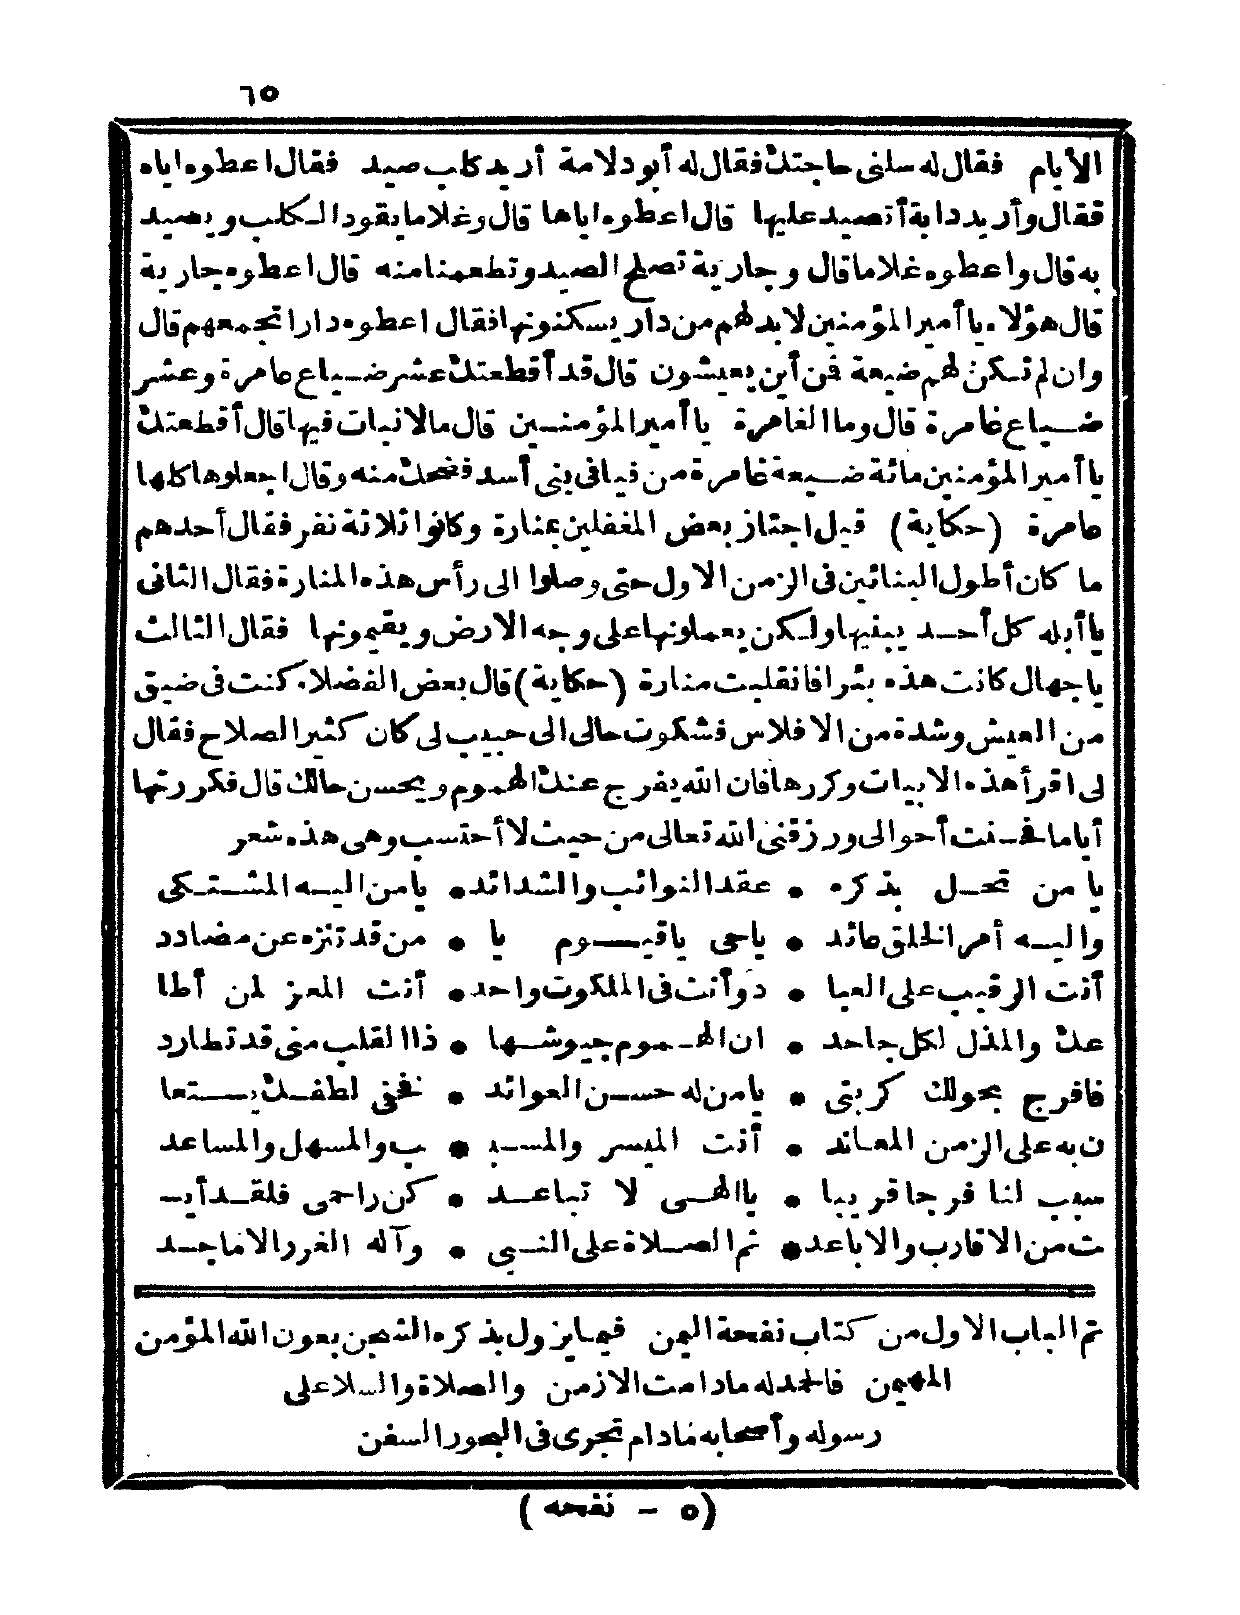 ٦٥
الأيام فقال له سلنى حاجتك فقال له أبو دلامة أريد كلب صيد فقال اعطوه اياه
فقال وأريد دابة أتصيد عليها قال اعطوه اياها قال وغلاما يقود الكلب ويصيد
به قال واعطوه غلاما قال وجارية تصلح الصيد وتطعمنا منه قال اعطوه جارية
قال هؤلاء يا أمير المؤمنين لا بد لهم من دار يسكنونها فقال اعطوه دارا تجمعهم قال
وان لم تكن لهم ضيعة فمن أين يعيشون قال قد أقطعتك عشر ضياع عامرة وعشر
ضياع غامرة قال وما الغامرة يا أمير المؤمنين قال مالا نبات فيها قال أقطعتك
يا أمير المؤمنين مائة ضيعة غامرة من فيافى بنى أسد فضحك منه وقال اجعلوها كلها
عامرة (حكاية) قيل اجتاز بعض المغفلين بمنارة وكانوا ثلاثة نفر فقال أحدهم
ما كان أطول البنائين فى الزمن الاول حتى وصلوا الى رأس هذه المنارة فقال الثانى
يا أبله كل أحد يبنيها ولكن يعملونها على وجه الارض ويقيمونها فقال الثالث
يا جهال كانت هذه بئرا فانقلبت منارة (حكاية) قال بعض الفضلاء كنت فى ضيق
من العيش وشدة من الافلاس فشكوت حالى الى حبيب لى كان كثير الصلاح فقال
لى اقرأ هذه الابيات وكررها فان الله يفرج عنك الهموم ويحسن حالك قال فكررتها
أياما فحسنت أحوالى ورزقنى الله تعالى من حيث لا أحتسب وهى هذه شعر
يا من تحل بذكره • عقد النوائب والشدائد • يا من اليه المشتكى
واليه أمر الخلق عائد • يا حى يا قيوم يا • من قد تنزه عن مضادد
أنت الرقيب على العبا • د وأنت فى الملكوت واحد • أنت المعز لمن أطا
عك والمذل لكل جاحد • ان الهموم جيوشها • ذا القلب منى قد تطارد
فافرج بحولك كربتى • يا من له حسن العوائد • فخفى لطفك يستعا
ن به على الزمن المعاند • أنت الميسر والمسبـ • ب والمسهل والمساعد
سبب لنا فرجا قريبا • يا الهى لا تباعد • كن راحمى فلقد أيسـ
ت من الاقارب والاباعد • ثم الصلاة على النبي • وآله الغرر الاماجد
تم الباب الاول من كتاب نفحة اليمن فيما يزول بذكره الشجن بعون الله المؤمن
المهيمن فالحمد له مادامت الازمن والصلاة والسلا على
رسوله وأصحابه مادام تجرى فى البحور السفن
(٥ - نفحه)